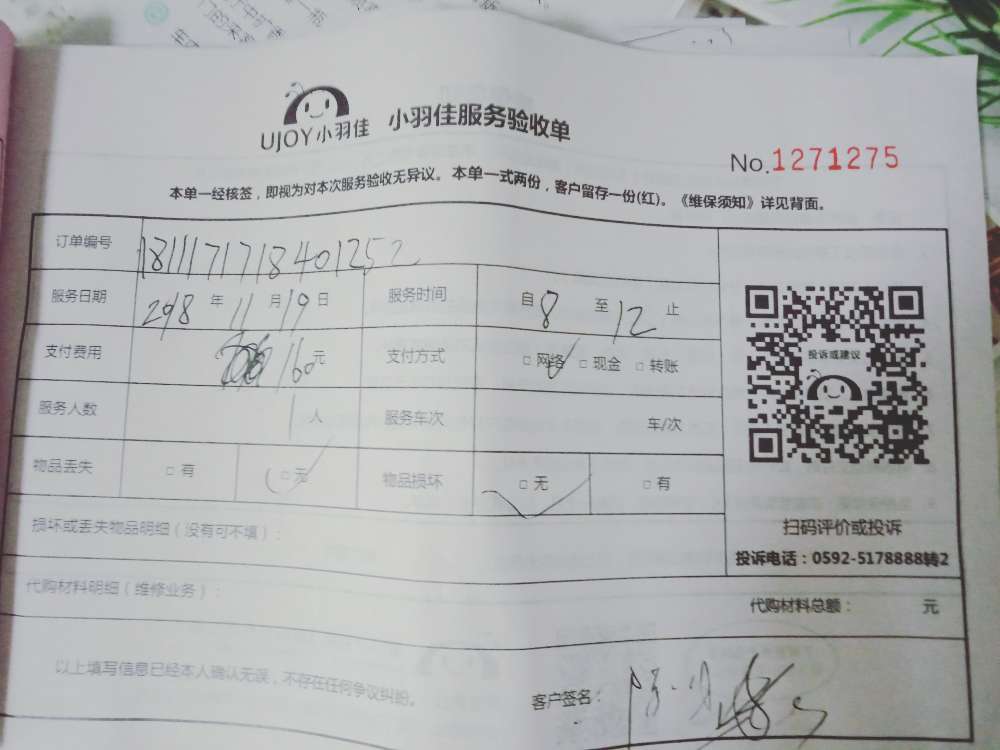 UJOY小羽佳 小羽佳服务验收单
No.1271275
本单一经核签，即视为对本次服务验收无异议。本单一式两份，客户留存一份(红)。《维保须知》详见背面。
订单编号 1811171718401252
服务日期 2018 年 11 月 19 日 服务时间 自 8 至 12 止
支付费用 160 元 支付方式 □ 网络 □ 现金 □ 转账
服务人数 1 人 服务车次 车/次
物品丢失 □ 有 □ 无 物品损坏 □ 无 □ 有
投诉或建议
扫码评价或投诉
投诉电话：0592-5178888转2
损坏或丢失物品明细（没有可不填）：
代购材料明细（维修业务）：
代购材料总额： 元
以上填写信息已经本人确认无误，不存在任何争议纠纷。
客户签名：